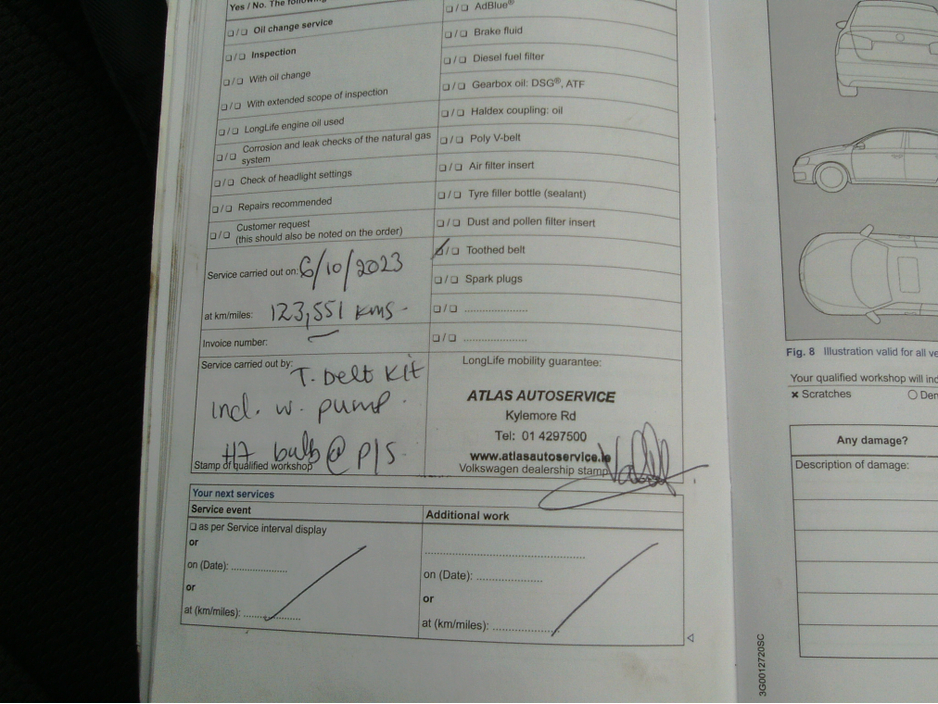 Yes / No. The following
❏/❏ Oil change service
❏/❏ Inspection
❏/❏ With oil change
❏/❏ With extended scope of inspection
❏/❏ LongLife engine oil used
❏/❏ Corrosion and leak checks of the natural gas
system
❏/❏ Check of headlight settings
❏/❏ Repairs recommended
❏/❏ Customer request
(this should also be noted on the order)
Service carried out on: 6/10/2023
at km/miles: 123,551 kms.
Invoice number: —
Service carried out by:
T. belt kit
incl. w. pump.
H7 bulb @ P/S.
Stamp of qualified workshop
❏/❏ AdBlue®
❏/❏ Brake fluid
❏/❏ Diesel fuel filter
❏/❏ Gearbox oil: DSG®, ATF
❏/❏ Haldex coupling: oil
❏/❏ Poly V-belt
❏/❏ Air filter insert
❏/❏ Tyre filler bottle (sealant)
❏/❏ Dust and pollen filter insert
❏/❏ Toothed belt
❏/❏ Spark plugs
❏/❏ ......................
❏/❏ ......................
LongLife mobility guarantee:
ATLAS AUTOSERVICE
Kylemore Rd
Tel: 01 4297500
www.atlasautoservice.ie
Volkswagen dealership stamp
Your next services
Service event
❏ as per Service interval display
or
on (Date): ...................
or
at (km/miles): ...................
Additional work
......................................................
on (Date): ......................
or
at (km/miles): ......................
Fig. 8 Illustration valid for all ve
Your qualified workshop will inc
× Scratches ○ Den
Any damage?
Description of damage:
3G0012720SC